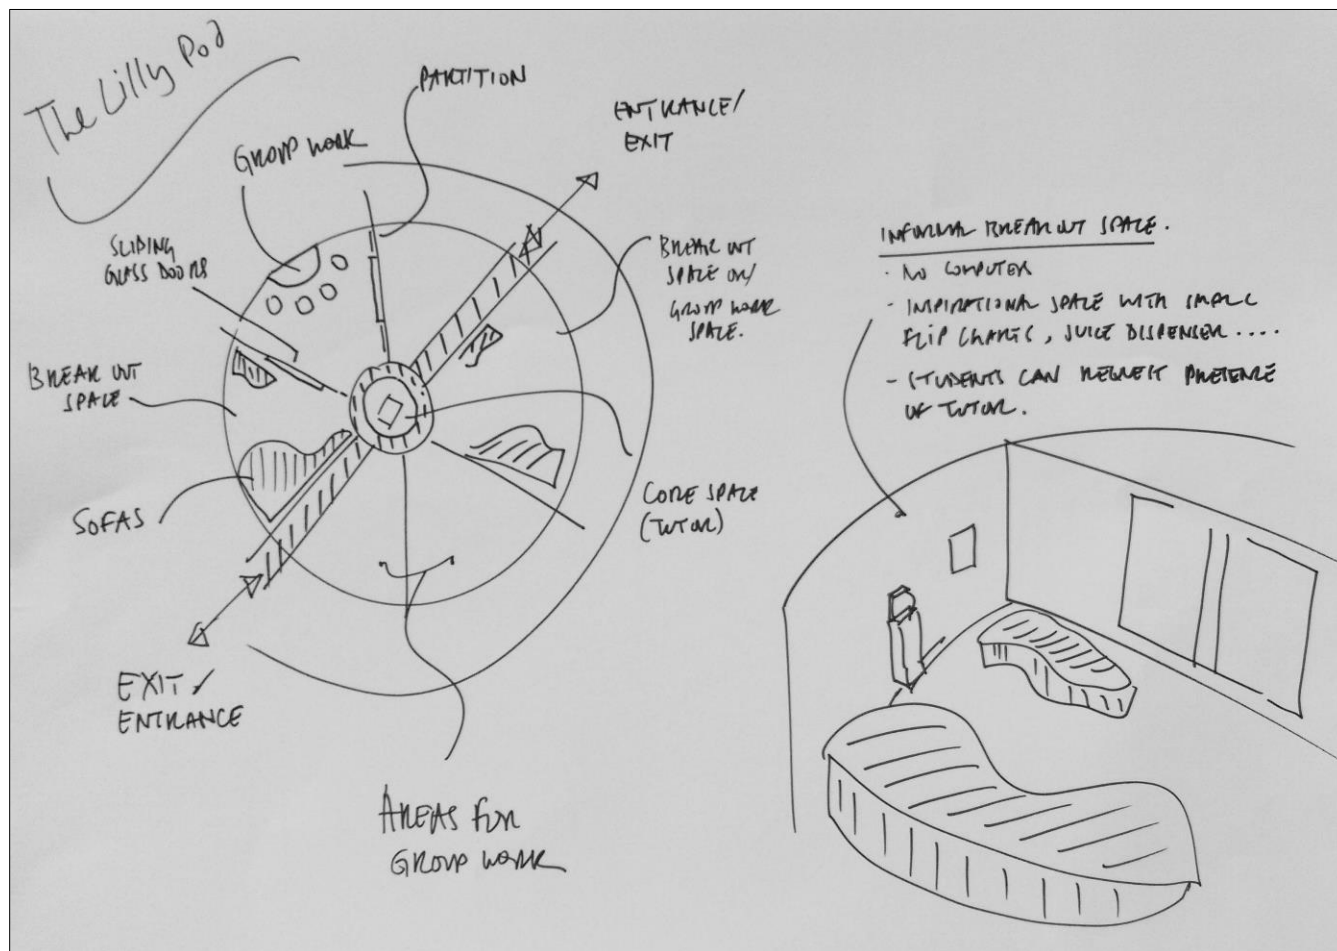 The Lilly Pod
PARTITION
ENTRANCE/
EXIT
GROUP WORK
SLIDING
GLASS DOORS
BREAK OUT
SPACE OR/
GROUP WORK
SPACE.
BREAK OUT
SPACE
SOFAS
CORE SPACE
(TUTOR)
EXIT /
ENTRANCE
AREAS FOR
GROUP WORK
INFORMAL BREAK OUT SPACE.
· NO COMPUTER
- INSPIRATIONAL SPACE WITH SMALL
FLIP CHARTS, JUICE DISPENSER ....
- STUDENTS CAN REQUEST PRESENCE
OF TUTOR.